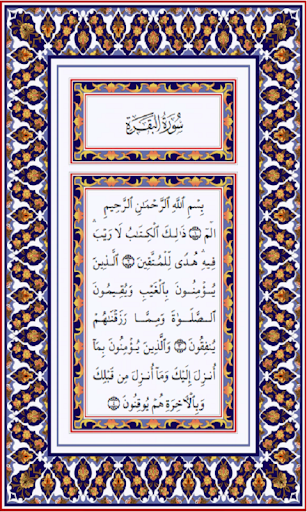 سُورَةُ البَقَرَةِ
بِسْمِ اللَّهِ الرَّحْمَٰنِ الرَّحِيمِ
الٓمٓ ۝ ذَٰلِكَ الْكِتَابُ لَا رَيْبَ ۛ
فِيهِ هُدًى لِّلْمُتَّقِينَ ۝ الَّذِينَ
يُؤْمِنُونَ بِالْغَيْبِ وَيُقِيمُونَ
الصَّلَوٰةَ وَمِمَّا رَزَقْنَاهُمْ
يُنفِقُونَ ۝ وَالَّذِينَ يُؤْمِنُونَ بِمَا
أُنزِلَ إِلَيْكَ وَمَا أُنزِلَ مِن قَبْلِكَ
وَبِالْآخِرَةِ هُمْ يُوقِنُونَ ۝